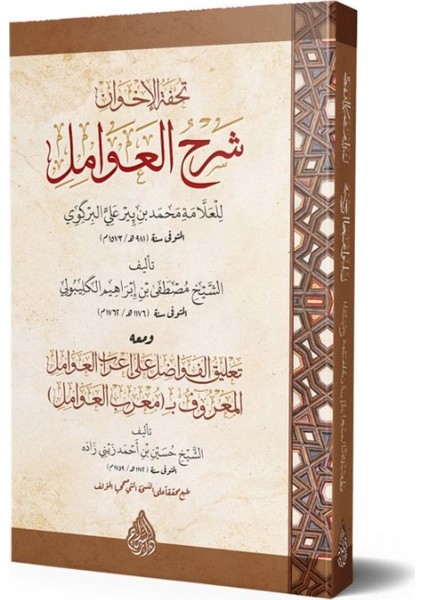 تحفة الإخوان
شرح العوامل
للعلامة محمد بن بير علي البركوي
المتوفى سنة (٩٨١هـ/١٥٧٣م)
تأليف
الشيخ مصطفى بن إبراهيم الكليبولي
المتوفى سنة (١١٧٦هـ/١٧٦٢م)
ومعه
تعليق الفواضل على إعراب العوامل
المعروف بـ (معرب العوامل)
تأليف
الشيخ حسين بن أحمد زيني زاده
المتوفى سنة
طبع محققا على النسخة التي صححها المؤلف
دار السراج